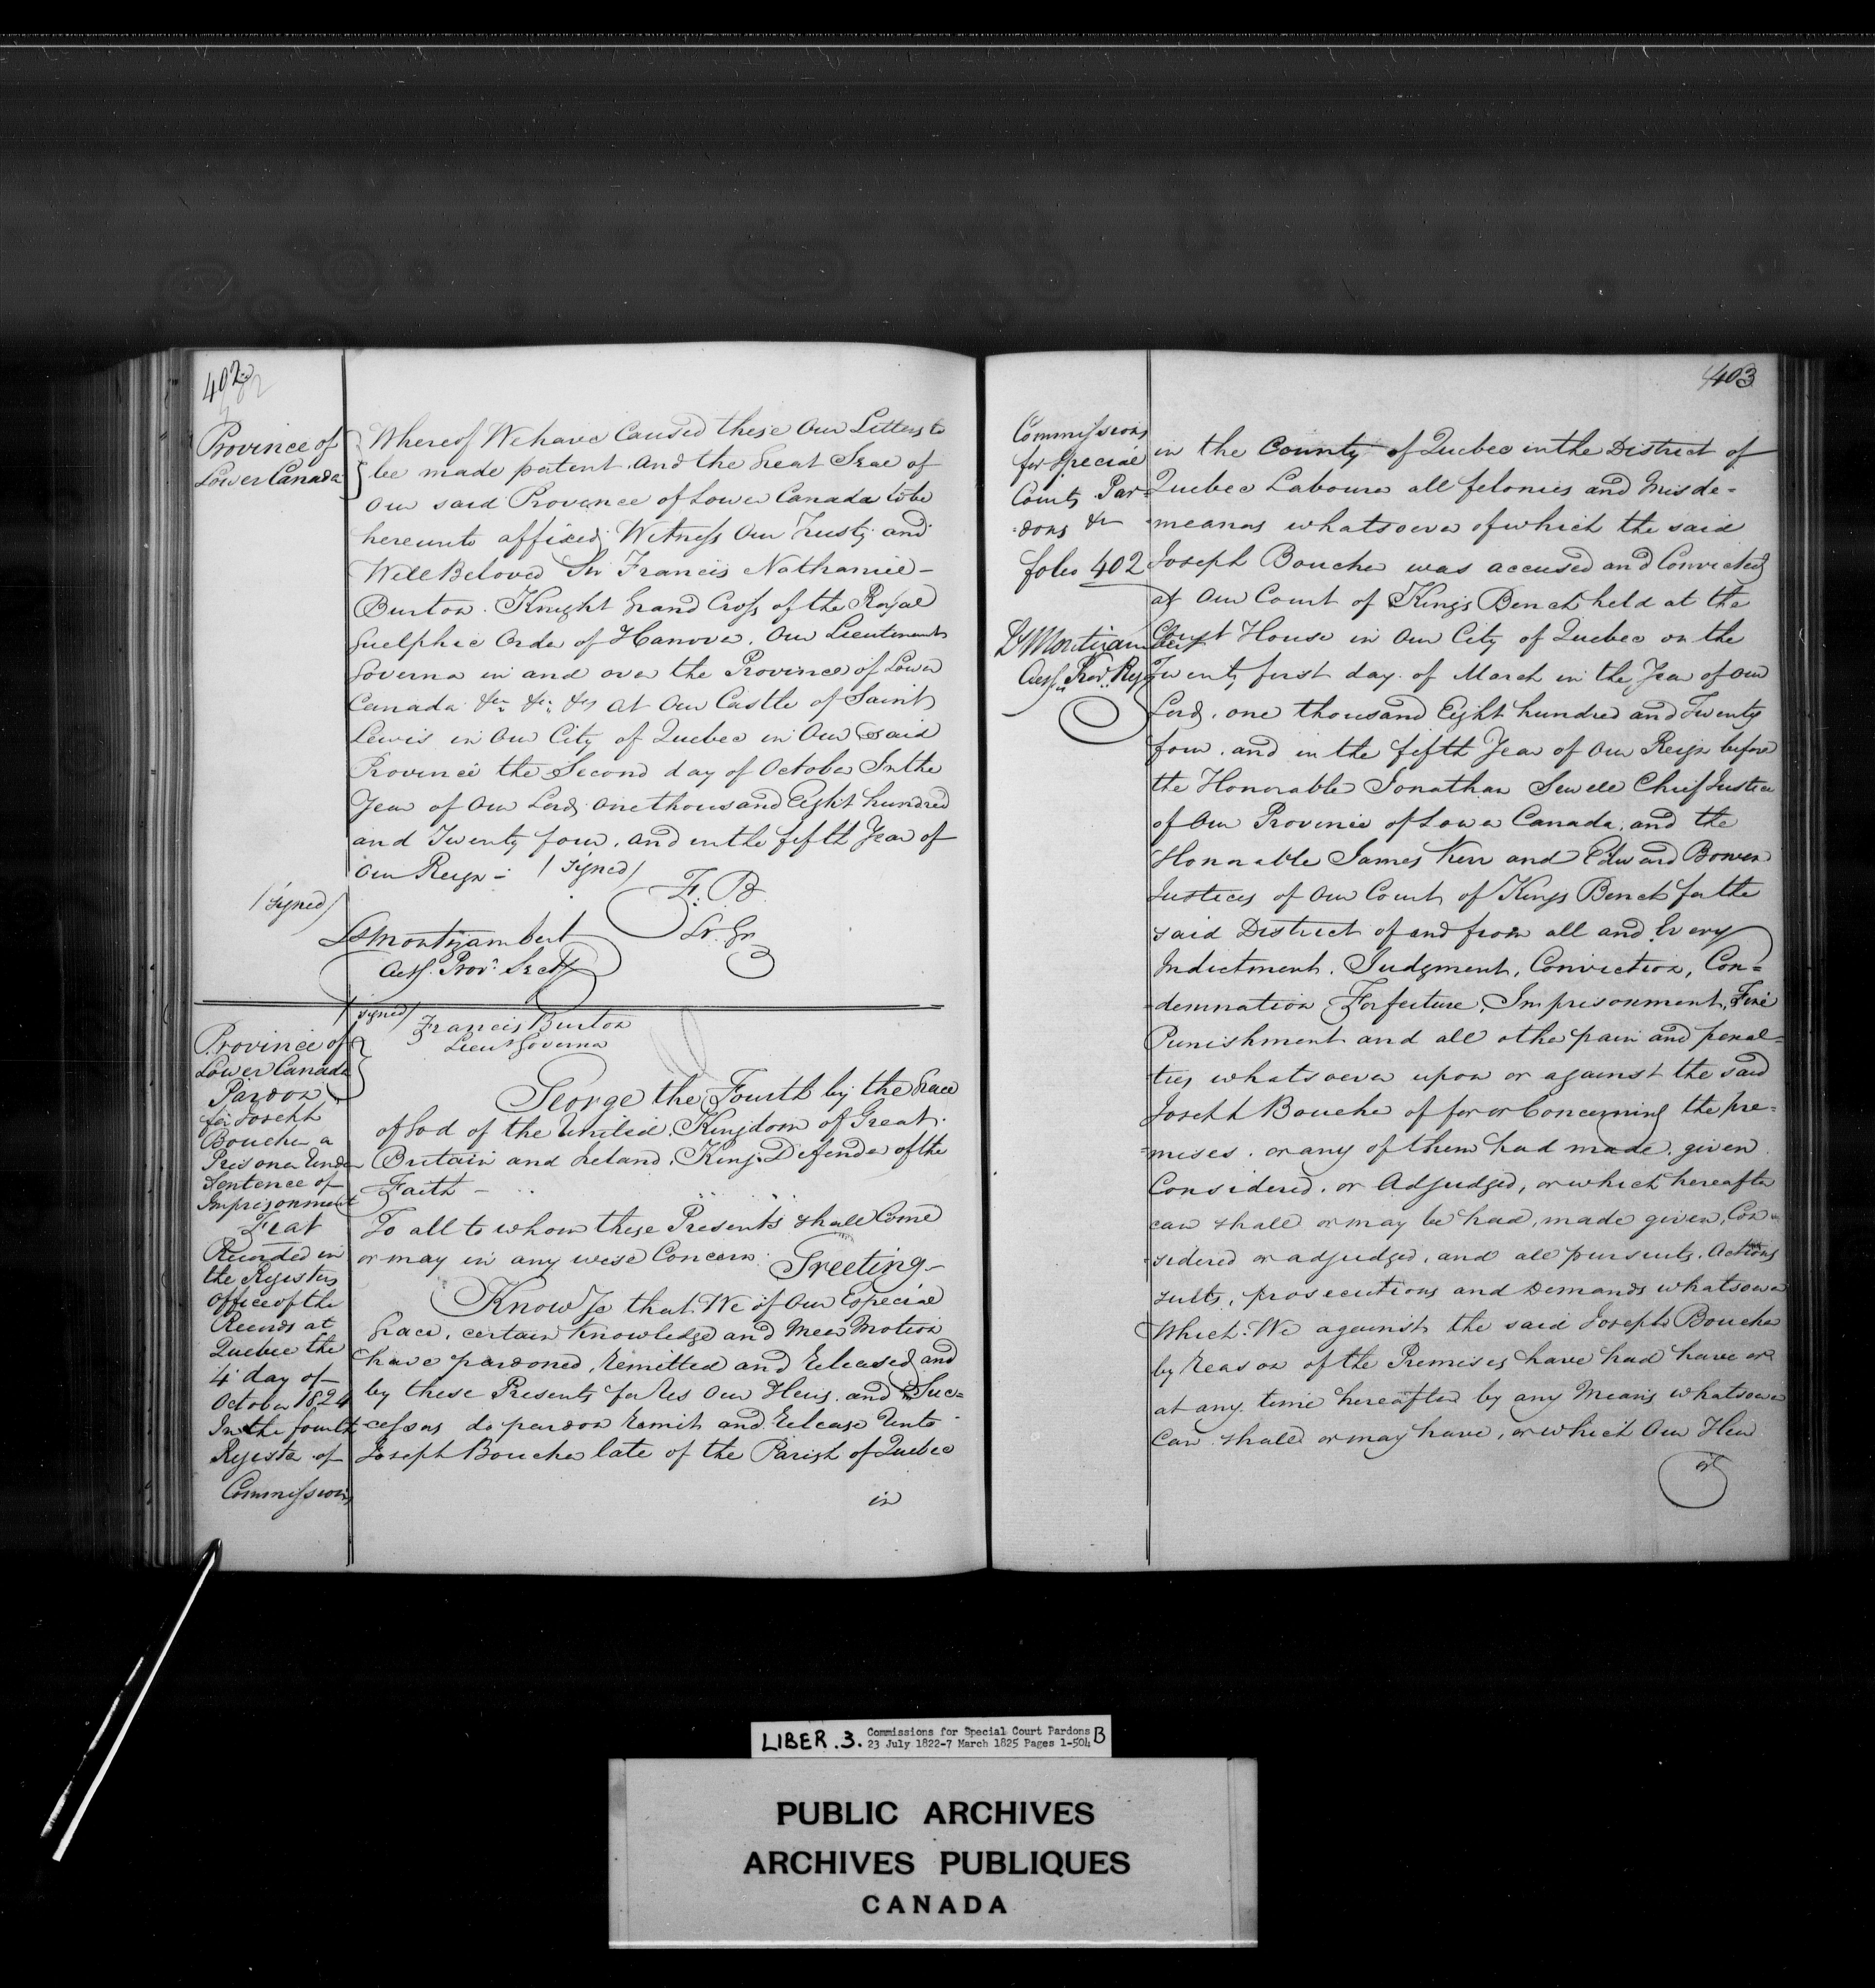 402
Province of
Lower Canada
Whereof We have Caused these Our Letters to
be made patent. And the Great Seal of
Our said Province of Lower Canada to be
hereunto affixed. Witness Our Trusty and
Well Beloved Sir Francis Nathaniel-
Burton. Knight Grand Cross of the Royal
Guelphic Order of Hanover. Our Lieutenant
Governor in and over the Province of Lower
Canada &c. &c. &c. At Our Castle of Saint
Lewis in Our City of Quebec in Our said
Province the Second day of October In the
Year of Our Lord One thousand Eight hundred
and Twenty four. and in the fifth Year of
Our Reign - /signed/
F. B.
Lt. Gr.
/signed/
Ls Montizambert
Actg. Prov: Secty
Province of
Lower Canada
Pardon
for Joseph
Boucher a
Prisoner Under
Sentence of
Imprisonment
Fiat
Recorded in
the Registers
Office of the
Records at
Quebec the
4 day of
October 1824
In the fourth
Register of
Commissions
/signed/ Francis Burton
Lieut Governor
George the Fourth by the Grace
of God of the United Kingdom of Great
Britain and Ireland, King, Defender of the
Faith -
To all to whom these Presents shall Come
or may in any wise Concern. Greeting-
Know Ye that We of Our Especial
Grace, certain knowledge and Meer Motion
have pardoned, Remitted and Released and
by these Presents for Us Our Heirs. and Suc=
cessors do pardon Remit and Release Unto
Joseph Boucher late of the Parish of Quebec
in
403
Commissions
for Special
Courts Par=
=dons &c
folio 402
Ls Montizambert
Actg. Prov. Reg
in the County of Quebec in the District of
Quebec Labourer all felonies and Misde=
=meanors whatsoever of which the said
Joseph Boucher was accused and Convicted
at Our Court of Kings Bench held at the
Court House in Our City of Quebec on the
Twenty first day. of March in the Year of Our
Lord. one thousand Eight hundred and Twenty
four. and in the fifth Year of Our Reign before
the Honorable Jonathan Sewell Chief Justice
of Our Province of Lower Canada, and the
Honorable James Kerr and Edward Bowen
Justices of Our Court of Kings Bench for the
said District of and from all and Every
Indictment. Judgment, Conviction, Con=
=demnation Forfeiture, Imprisonment, Fine
Punishment and all other pain and penal=
ties whatsoever upon or against the said
Joseph Boucher of for or Concerning the pre=
=mises. or any of them had made, given
Considered. or Adjudged, or which hereafter
can shall or may be had, made given, Con=
=sidered or adjudged, and all pursuits. Actions
suits, prosecutions and Demands whatsoever
Which We against the said Joseph Boucher
by reason of the Premises have had have or
at any time hereafter by any Means whatsoever
Can shall or may have, or which Our Heirs
or
LIBER .3. Commissions for Special Court Pardons B
23 July 1822-7 March 1825 Pages 1-504
PUBLIC ARCHIVES
ARCHIVES PUBLIQUES
CANADA